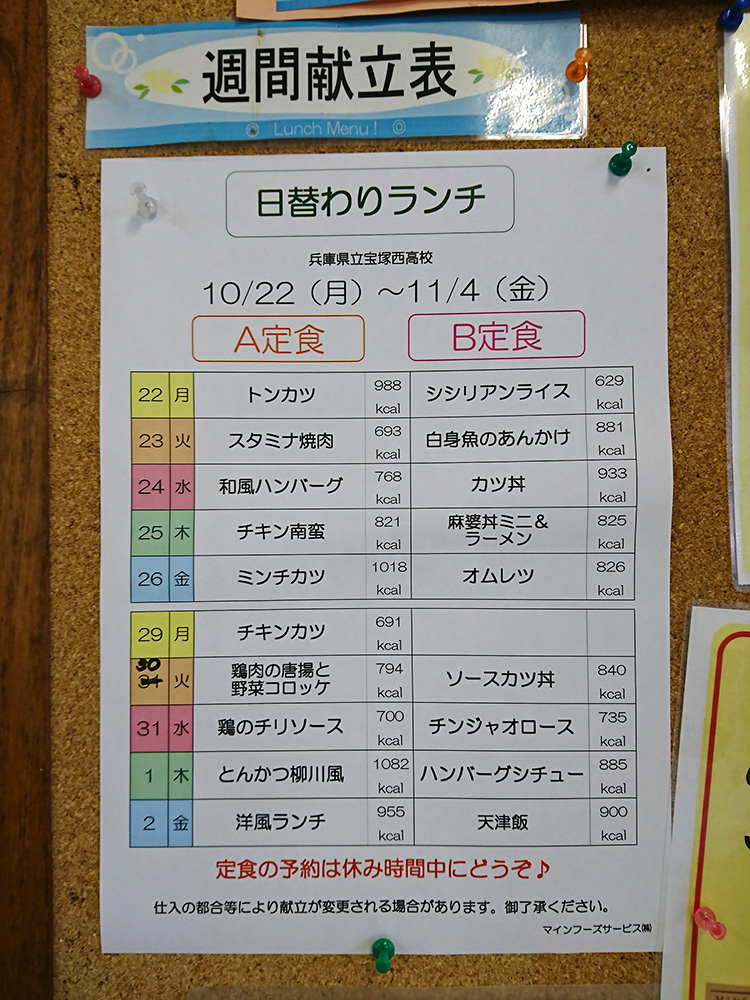 週間献立表
Lunch Menu!
日替わりランチ
兵庫県立宝塚西高校
10/22（月）～11/4（金）
A定食 B定食
22 月 トンカツ 988 kcal シシリアンライス 629 kcal
23 火 スタミナ焼肉 693 kcal 白身魚のあんかけ 881 kcal
24 水 和風ハンバーグ 768 kcal カツ丼 933 kcal
25 木 チキン南蛮 821 kcal 麻婆丼ミニ＆ラーメン 825 kcal
26 金 ミンチカツ 1018 kcal オムレツ 826 kcal
29 月 チキンカツ 691 kcal
30 火 鶏肉の唐揚と野菜コロッケ 794 kcal ソースカツ丼 840 kcal
31 水 鶏のチリソース 700 kcal チンジャオロース 735 kcal
1 木 とんかつ柳川風 1082 kcal ハンバーグシチュー 885 kcal
2 金 洋風ランチ 955 kcal 天津飯 900 kcal
定食の予約は休み時間中にどうぞ♪
仕入の都合等により献立が変更される場合があります。御了承ください。
マインフーズサービス㈱